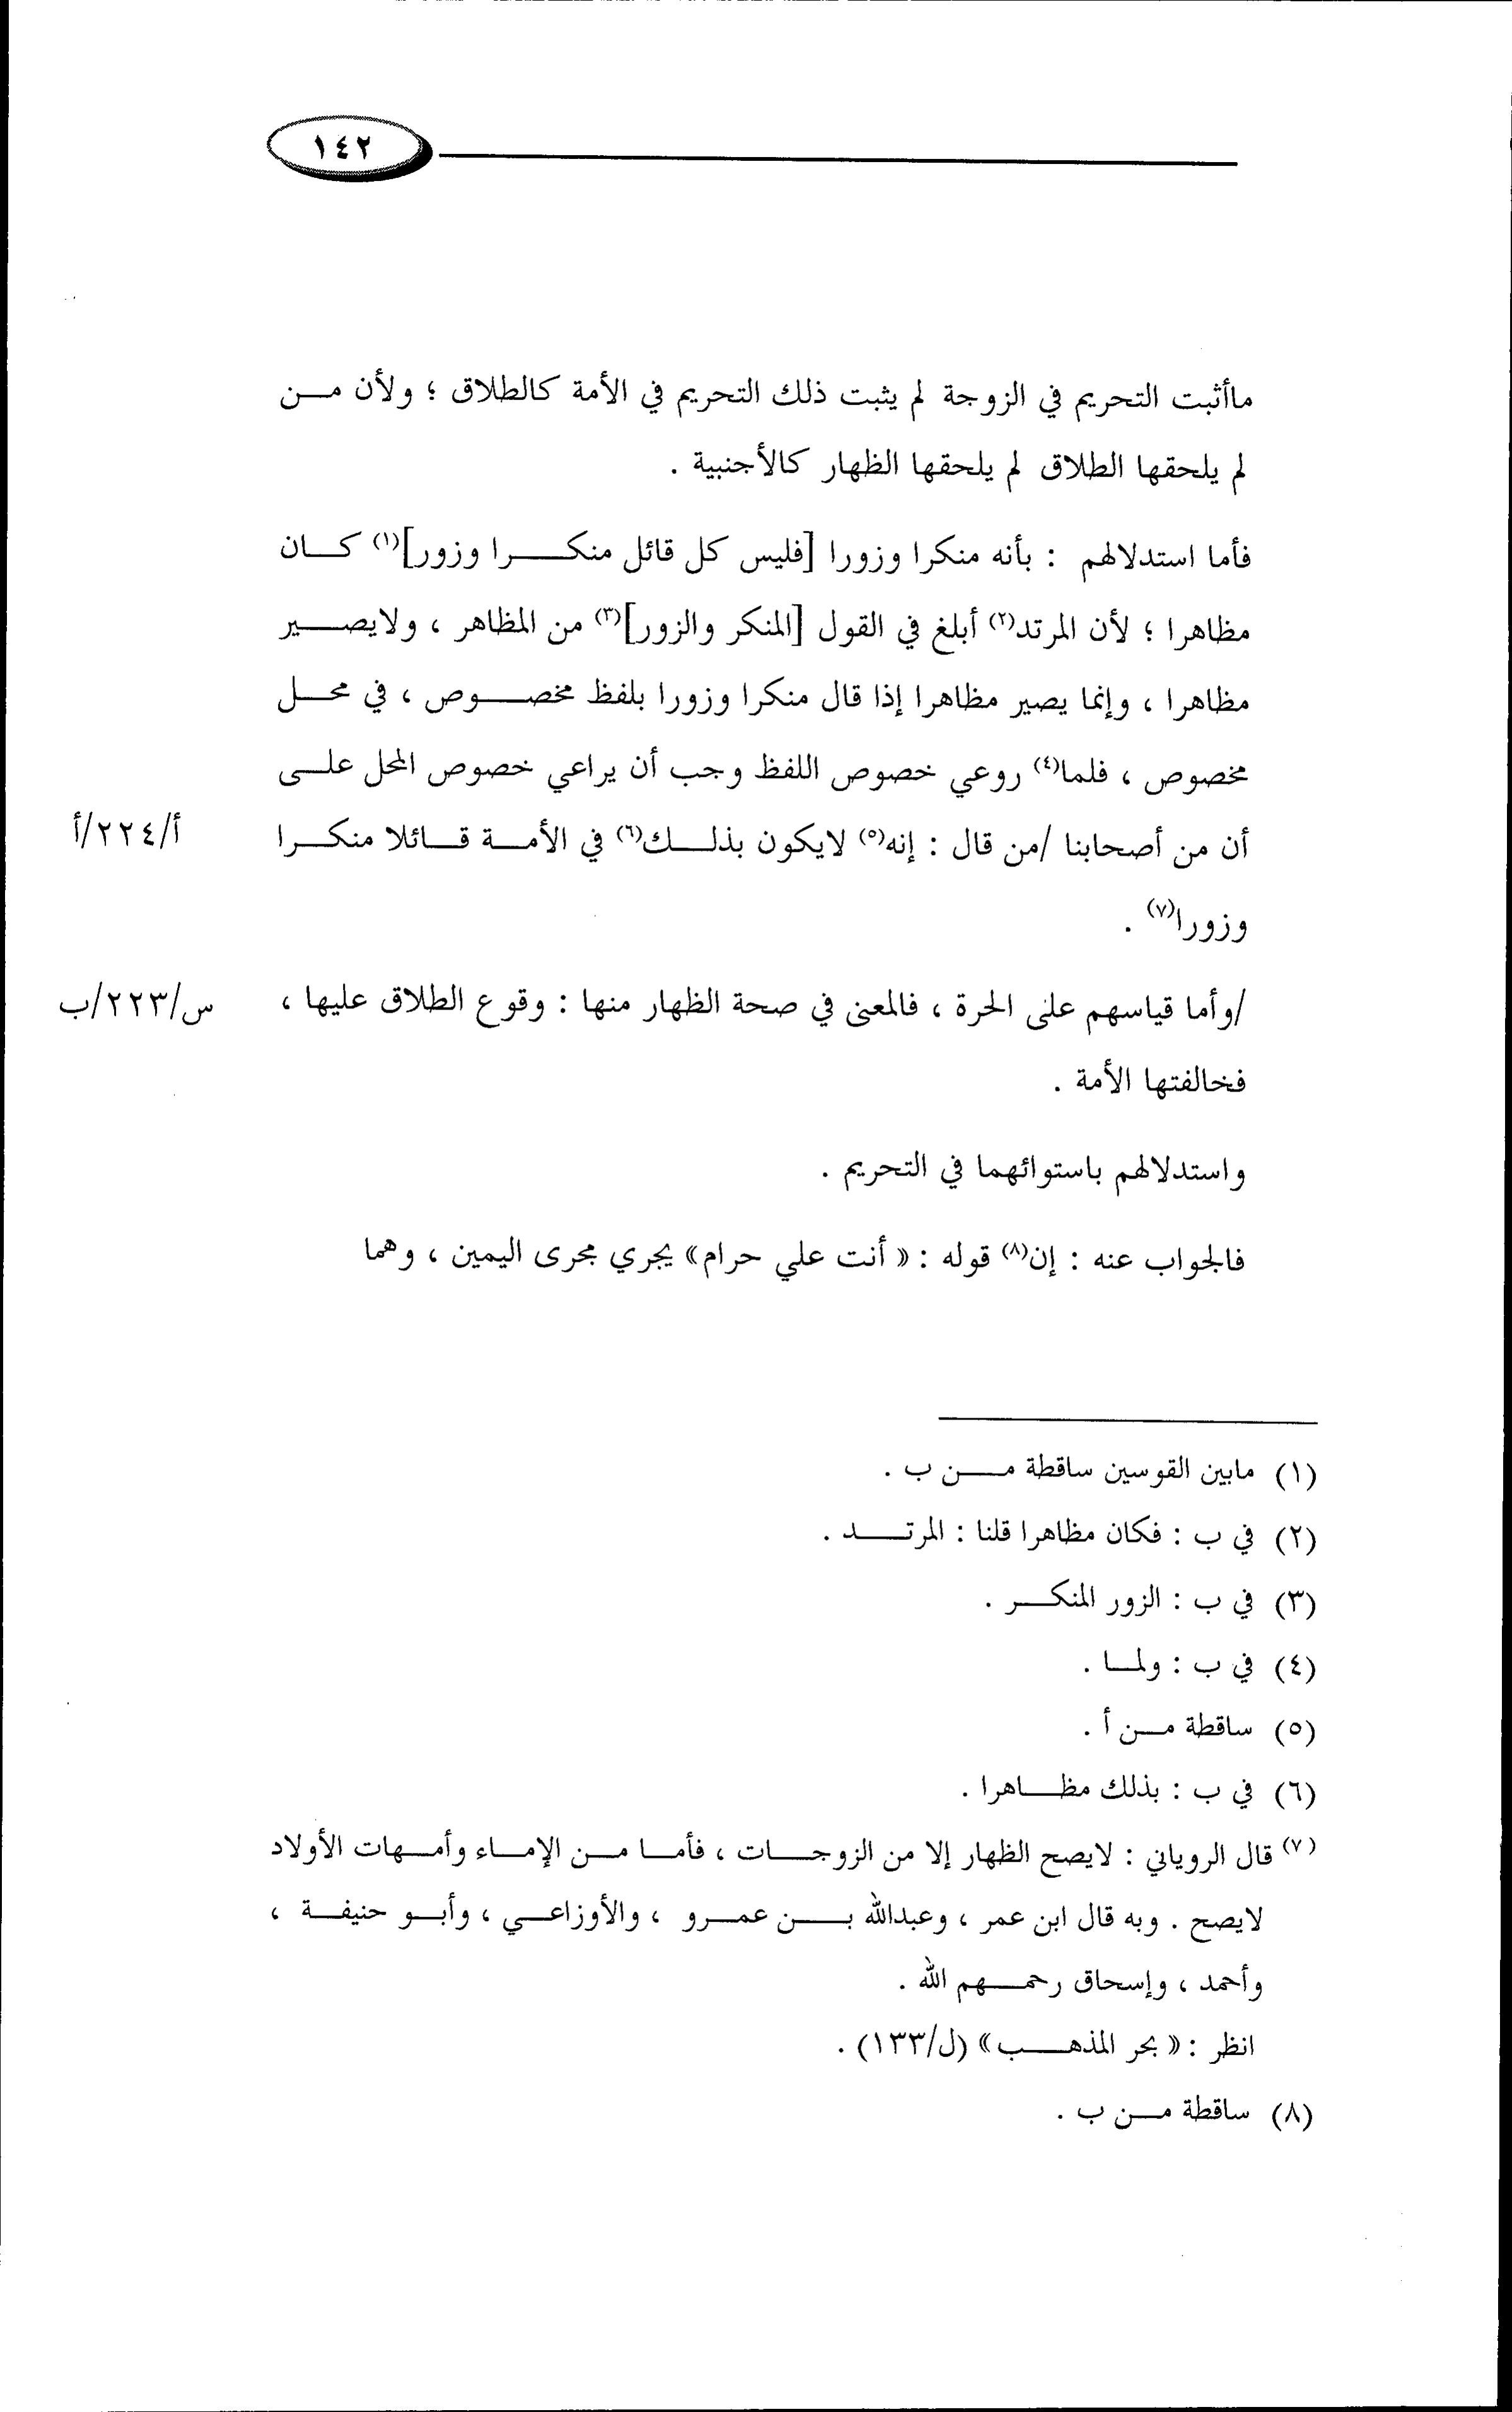 ١٤٢
ماأثبت التحريم في الزوجة لم يثبت ذلك التحريم في الأمة كالطلاق ؛ ولأن من
لم يلحقها الطلاق لم يلحقها الظهار كالأجنبية .
فأما استدلالهم : بأنه منكرا وزورا [فليس كل قائل منكرا وزور](١) كان
مظاهرا ؛ لأن المرتد(٢) أبلغ في القول [المنكر والزور](٣) من المظاهر ، ولايصير
مظاهرا ، وإنما يصير مظاهرا إذا قال منكرا وزورا بلفظ مخصوص ، في محل
مخصوص ، فلما(٤) روعي خصوص اللفظ وجب أن يراعي خصوص المحل على
أن من أصحابنا /من قال : إنه(٥) لايكون بذلك(٦) في الأمة قائلا منكرا
أ/٢٢٤/أ
وزورا(٧) .
/وأما قياسهم على الحرة ، فالمعنى في صحة الظهار منها : وقوع الطلاق عليها ،
س/٢٢٣/ب
فخالفتها الأمة .
واستدلالهم باستوائهما في التحريم .
فالجواب عنه : إن(٨) قوله : « أنت علي حرام» يجري مجرى اليمين ، وهما
(١) مابين القوسين ساقطة من ب .
(٢) في ب : فكان مظاهرا قلنا : المرتد .
(٣) في ب : الزور المنكر .
(٤) في ب : ولما .
(٥) ساقطة من أ .
(٦) في ب : بذلك مظاهرا .
(٧) قال الروياني : لايصح الظهار إلا من الزوجات ، فأما من الإماء وأمهات الأولاد
لايصح . وبه قال ابن عمر ، وعبدالله بن عمرو ، والأوزاعي ، وأبو حنيفة ،
وأحمد ، وإسحاق رحمهم الله .
انظر : « بحر المذهب» (ل/١٣٣) .
(٨) ساقطة من ب .